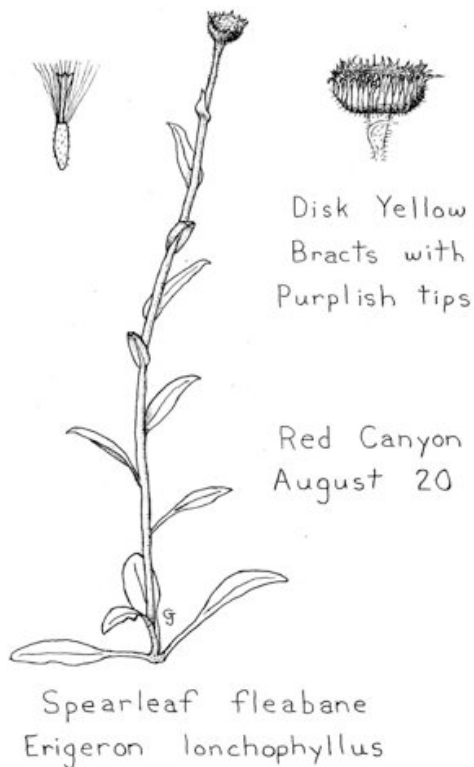 Disk Yellow
Bracts with
Purplish tips
Red Canyon
August 20
G
Spearleaf fleabane
Erigeron lonchophyllus